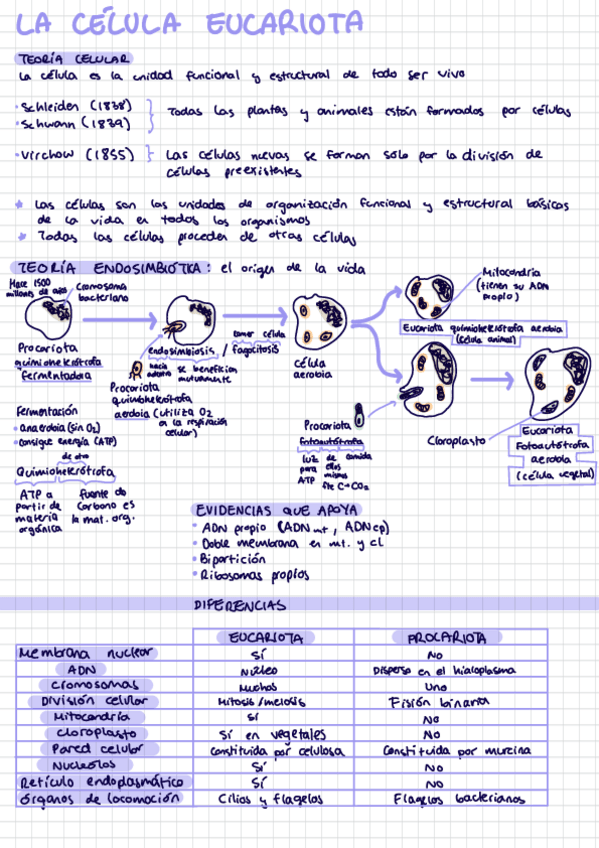 LA CÉLULA EUCARIOTA
TEORÍA CELULAR
La célula es la unidad funcional y estructural de todo ser vivo
· Schleiden (1838)
· Schwann (1839)
Todas las plantas y animales están formados por células
· Virchow (1855)
Las células nuevas se forman sólo por la división de
células preexistentes
* Las células son las unidades de organización funcional y estructural básicas
de la vida en todos los organismos
* Todas las células proceden de otras células
TEORÍA ENDOSIMBIÓTICA: el origen de la vida
Hace 1500
millones de años
Cromosoma
bacteriano
Mitocondria
(tienen su ADN
propio)
Procariota
quimioheterótrofa
fermentadora
endosimbiosis / fagocitosis
comer célula
hacia adentro
se benefician
mutuamente
Célula
aerobia
Eucariota quimioheterótrofa aerobia
(célula animal)
Procariota
quimioheterótrofa
aerobia (utiliza O2
en la respiración
celular)
Procariota
fotoautótrofa
luz para ATP
de comida ellos mismos
fte C→CO2
Cloroplasto
Eucariota
Fotoautótrofa
aerobia
(célula vegetal)
Fermentación
· anaerobia (sin O2)
· consigue energía (ATP)
de otro
Quimioheterótrofa
ATP a
partir de
materia
orgánica
fuente de
Carbono es
la mat. org.
EVIDENCIAS QUE APOYA
· ADN propio (ADN mt, ADN cp)
· Doble membrana en mt. y cl
· Bipartición
· Ribosomas propios
DIFERENCIAS
EUCARIOTA PROCARIOTA
Membrana nuclear Sí No
ADN Núcleo Disperso en el hialoplasma
Cromosomas Muchos Uno
División celular Mitosis/meiosis Fisión binaria
Mitocondria Sí No
Cloroplasto Sí en vegetales No
Pared celular Constituida por celulosa Constituida por mureina
Nucleolos Sí No
Retículo endoplasmático Sí No
Órganos de locomoción Cilios y flagelos Flagelos bacterianos